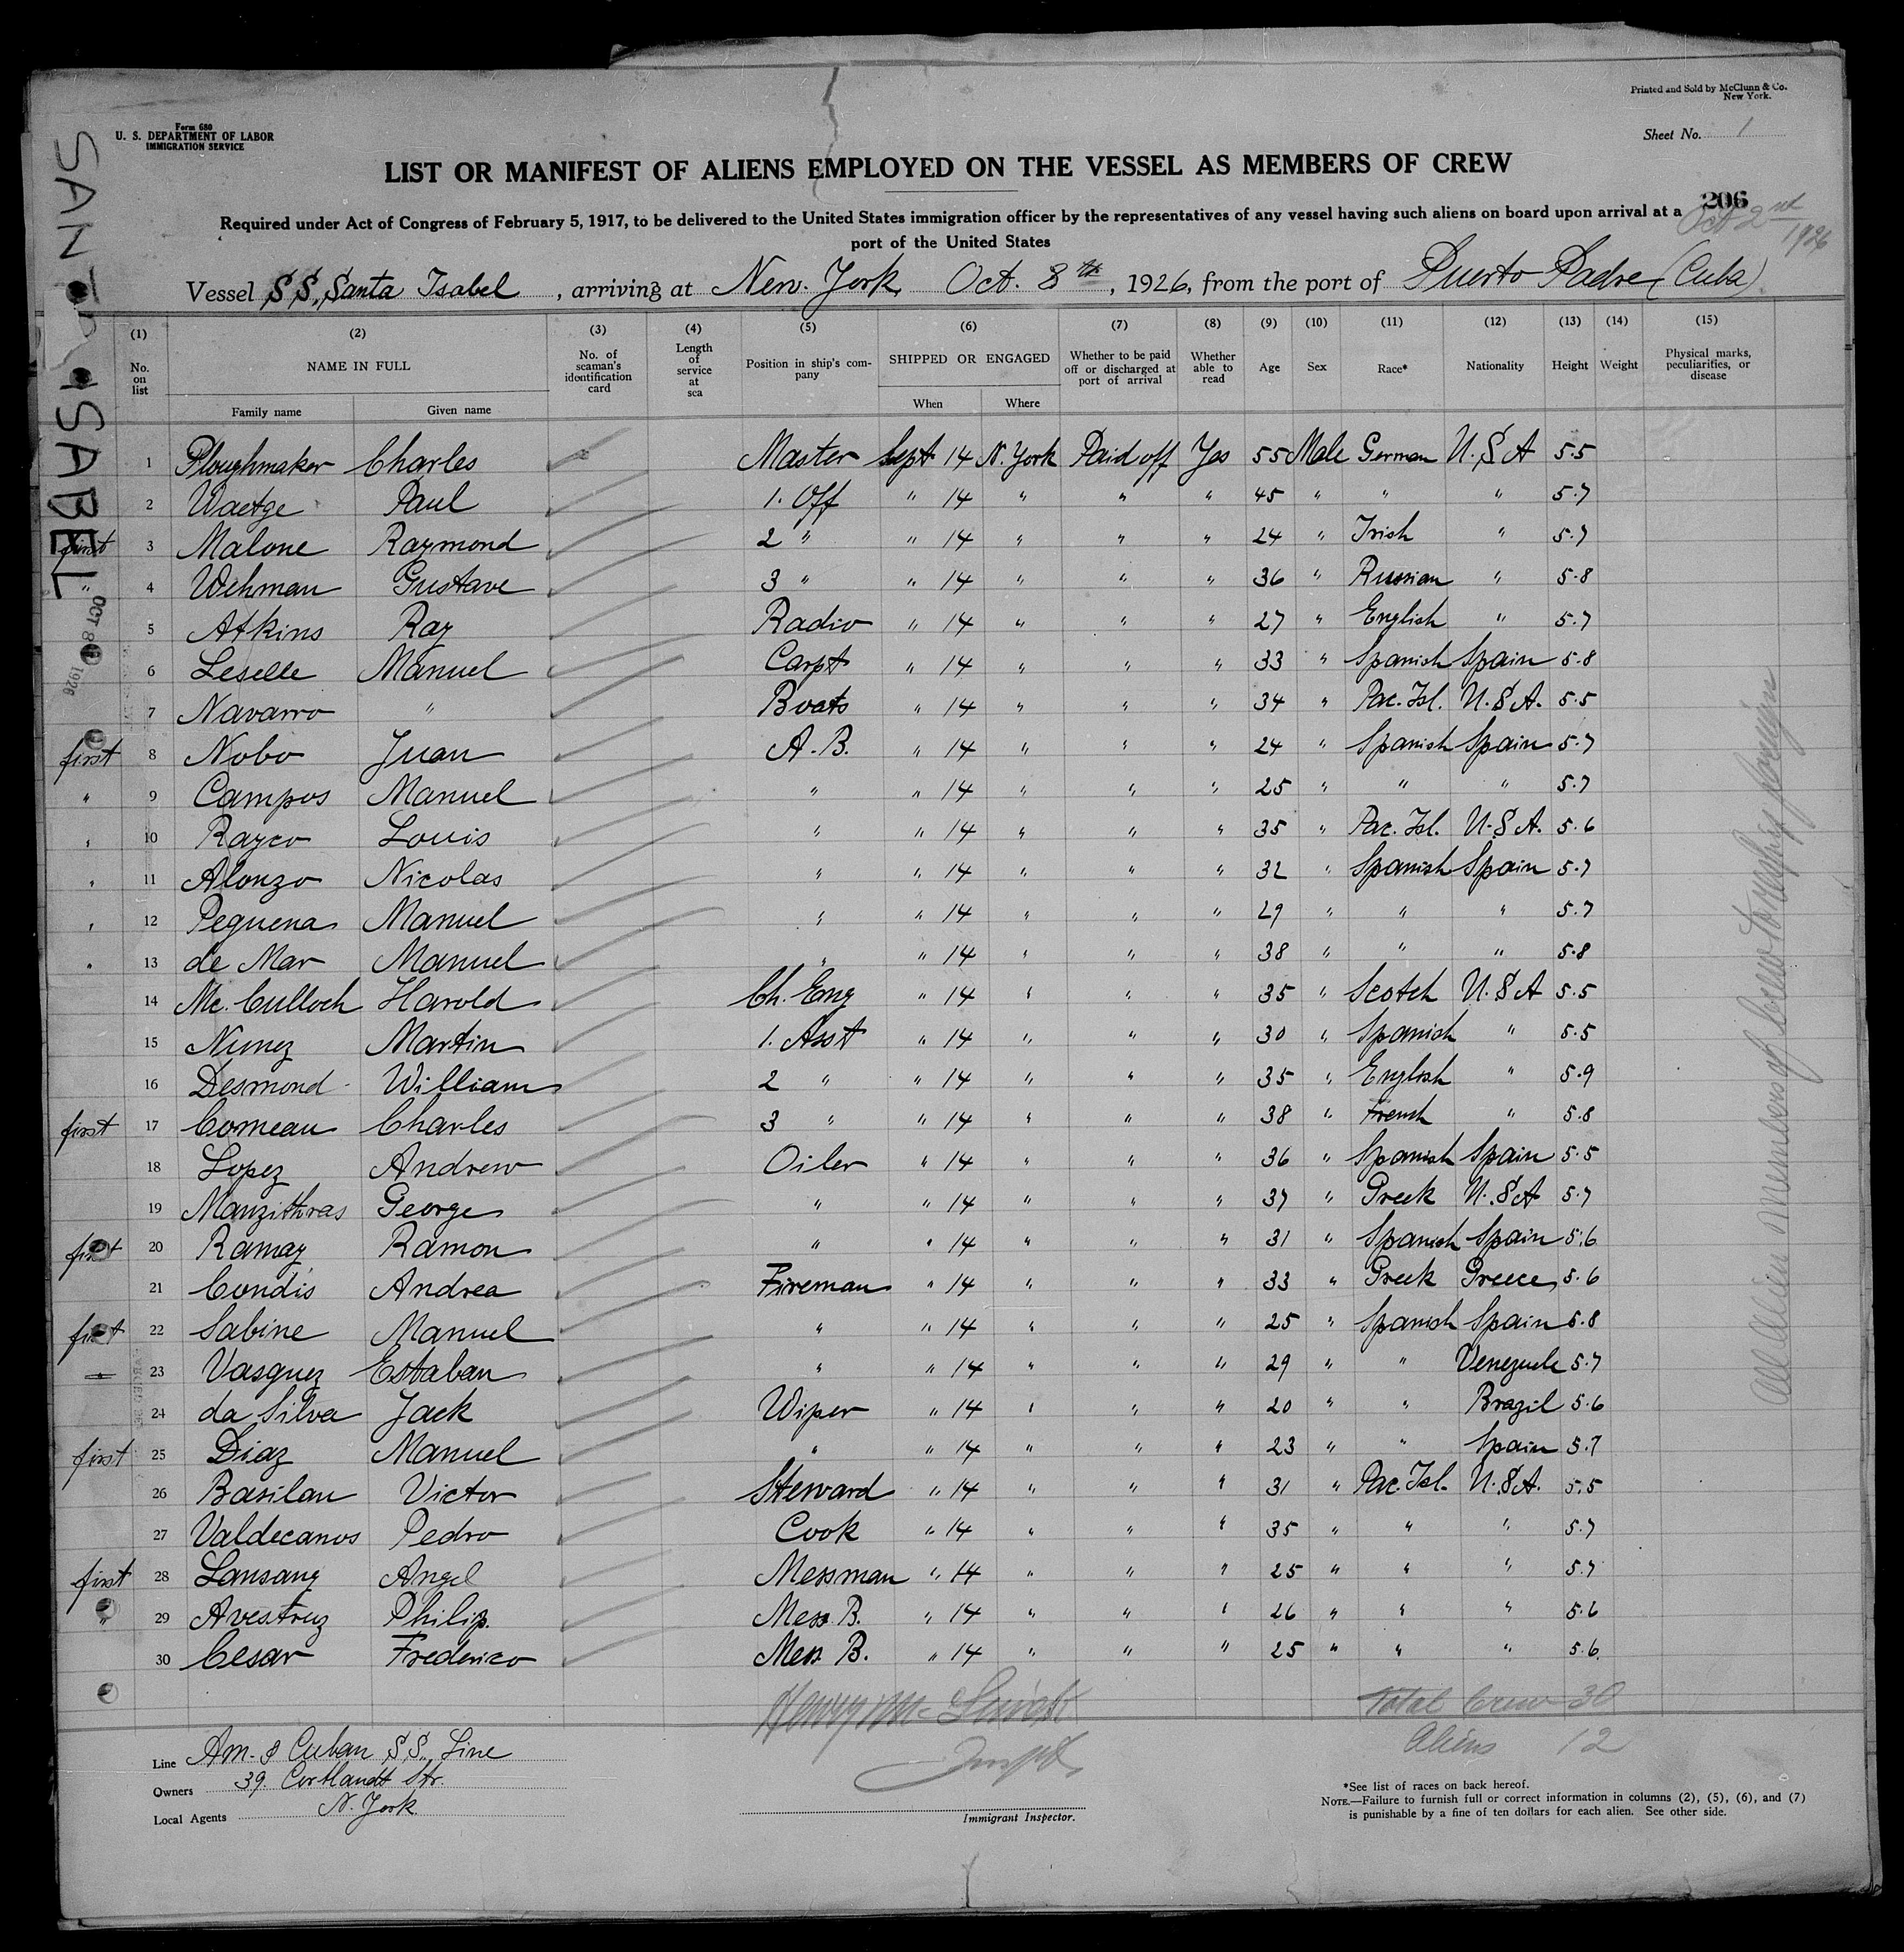 Printed and Sold by McClunn & Co.
New York.
Form 680
U. S. DEPARTMENT OF LABOR
IMMIGRATION SERVICE
Sheet No. 1
LIST OR MANIFEST OF ALIENS EMPLOYED ON THE VESSEL AS MEMBERS OF CREW
206
Required under Act of Congress of February 5, 1917, to be delivered to the United States immigration officer by the representatives of any vessel having such aliens on board upon arrival at a
port of the United States
Oct 2nd 1926
Vessel S.S. Santa Isabel, arriving at New. York, Oct. 8th, 1926, from the port of Puerto Padre (Cuba)
SANTA ISABEL
OCT 8 1926
(1) (2) (3) (4) (5) (6) (7) (8) (9) (10) (11) (12) (13) (14) (15)
No. on list NAME IN FULL Family name Given name No. of seaman's identification card Length of service at sea Position in ship's company SHIPPED OR ENGAGED When Where Whether to be paid off or discharged at port of arrival Whether able to read Age Sex Race* Nationality Height Weight Physical marks, peculiarities, or disease
1 Ploughmaker Charles Master Sept 14 N. York Paid off Yes 55 Male German U.S.A 5.5
2 Waetge Paul 1. Off " 14 " " " 45 " " " 5.7
first 3 Malone Raymond 2 " " 14 " " " 24 " Irish " 5.7
" 4 Wehman Gustave 3 " " 14 " " " 36 " Russian " 5.8
5 Atkins Ray Radio " 14 " " " 27 " English " 5.7
6 Leselle Manuel Carpt " 14 " " " 33 " Spanish Spain 5.8
7 Navarro " Boats " 14 " " " 34 " Pac. Isl. U.S.A. 5.5
first 8 Nobo Juan A.B. " 14 " " " 24 " Spanish Spain 5.7
" 9 Campos Manuel " " 14 " " " 25 " " " 5.7
" 10 Rayco Louis " " 14 " " " 35 " Pac. Isl. U.S.A. 5.6
" 11 Alonzo Nicolas " " 14 " " " 32 " Spanish Spain 5.7
" 12 Pequena Manuel " " 14 " " " 29 " " " 5.7
" 13 de Mar Manuel " " 14 " " " 38 " " " 5.8
14 Mc. Culloch Harold Ch. Eng " 14 " " " 35 " Scotch U.S.A 5.5
15 Nunez Martin 1. Asst " 14 " " " 30 " Spanish " 5.5
16 Desmond William 2 " " 14 " " " 35 " English " 5.9
first 17 Comeau Charles 3 " " 14 " " " 38 " French " 5.8
18 Lopez Andrew Oiler " 14 " " " 36 " Spanish Spain 5.5
19 Manzithras George " " 14 " " " 37 " Greek U.S.A 5.7
first 20 Ramay Ramon " " 14 " " " 31 " Spanish Spain 5.6
21 Condis Andrea Fireman " 14 " " " 33 " Greek Greece 5.6
first 22 Sabine Manuel " " 14 " " " 25 " Spanish Spain 5.8
" 23 Vasquez Estaban " " 14 " " " 29 " " Venezuele 5.7
24 da Silva Jack Wiper " 14 " " " 20 " " Brazil 5.6
first 25 Diaz Manuel " " 14 " " " 23 " " Spain 5.7
26 Basilan Victor Steward " 14 " " " 31 " Pac. Isl. U.S.A. 5.5
27 Valdecanos Pedro Cook " 14 " " " 35 " " " 5.7
first 28 Lansang Angel Messman " 14 " " " 25 " " " 5.7
" 29 Avestruz Philip. Mess. B. " 14 " " " 26 " " " 5.6
30 Cesar Frederico Mess B. " 14 " " " 25 " " " 5.6.
All Alien Members of Crew to reship foreign
Total Crew 30
Aliens 12
Line Am. & Cuban S.S. Line
Owners 39. Cortlandt Str.
Local Agents N. York
Immigrant Inspector.
*See list of races on back hereof.
NOTE.—Failure to furnish full or correct information in columns (2), (5), (6), and (7)
is punishable by a fine of ten dollars for each alien. See other side.